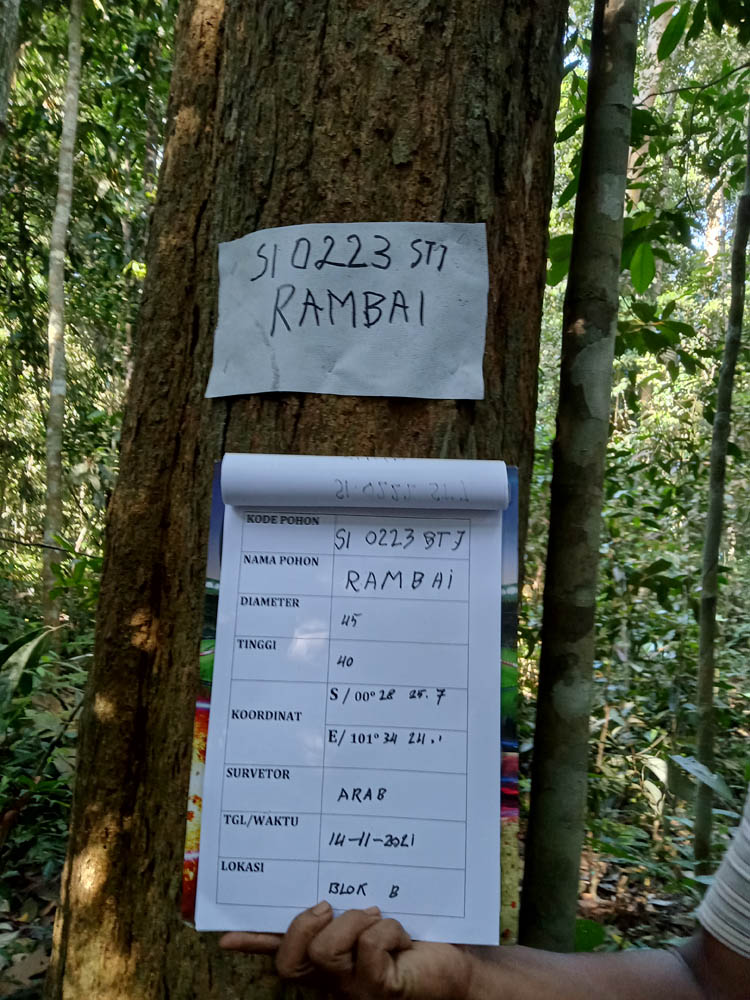 SI 0223 STJ
RAMBAI
KODE POHON SI 0223 STJ
NAMA POHON RAMBAI
DIAMETER 45
TINGGI 40
KOORDINAT
S / 00° 28 25.7
E/ 101° 34 24.
SURVETOR ARAB
TGL/WAKTU 14-11-2021
LOKASI BLOK B